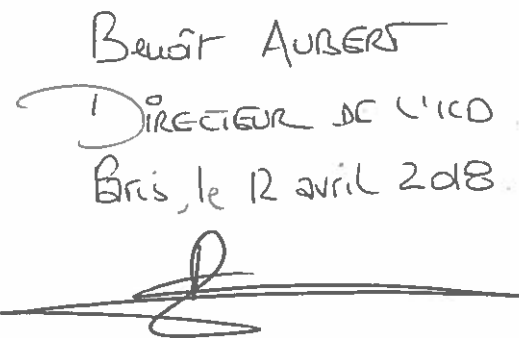 Benoît AUBERT
DIRECTEUR DE L'ICD
Paris, le 12 avril 2018